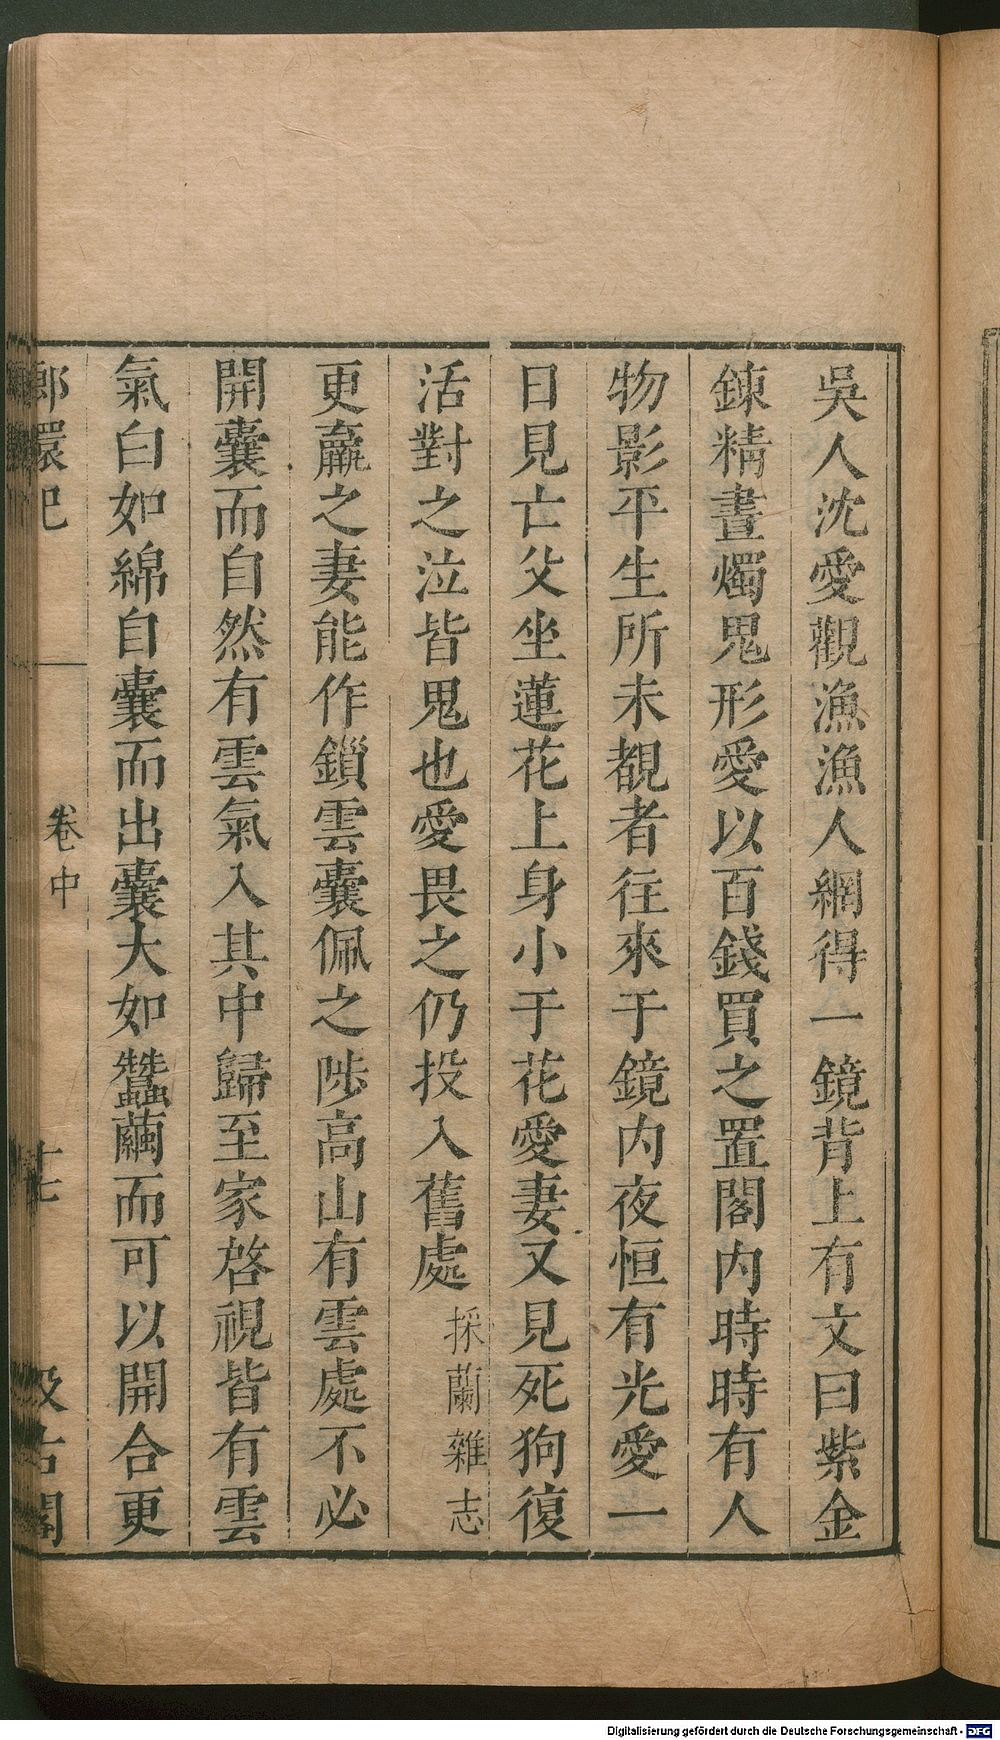 吳人沈愛觀漁漁人網得一鏡背上有文曰紫金
鍊精晝燭鬼形愛以百錢買之置閣内時時有人
物影平生所未覩者往來于鏡内夜恒有光愛一
日見亡父坐蓮花上身小于花愛妻又見死狗復
活對之泣皆鬼也愛畏之仍投入舊處採蘭雜志
更嬴之妻能作鎖雲囊佩之陟高山有雲處不必
開囊而自然有雲氣入其中歸至家啓視皆有雲
氣白如綿自囊而出囊大如蠶繭而可以開合更
卷中
十七
Digitalisierung gefördert durch die Deutsche Forschungsgemeinschaft - DFG